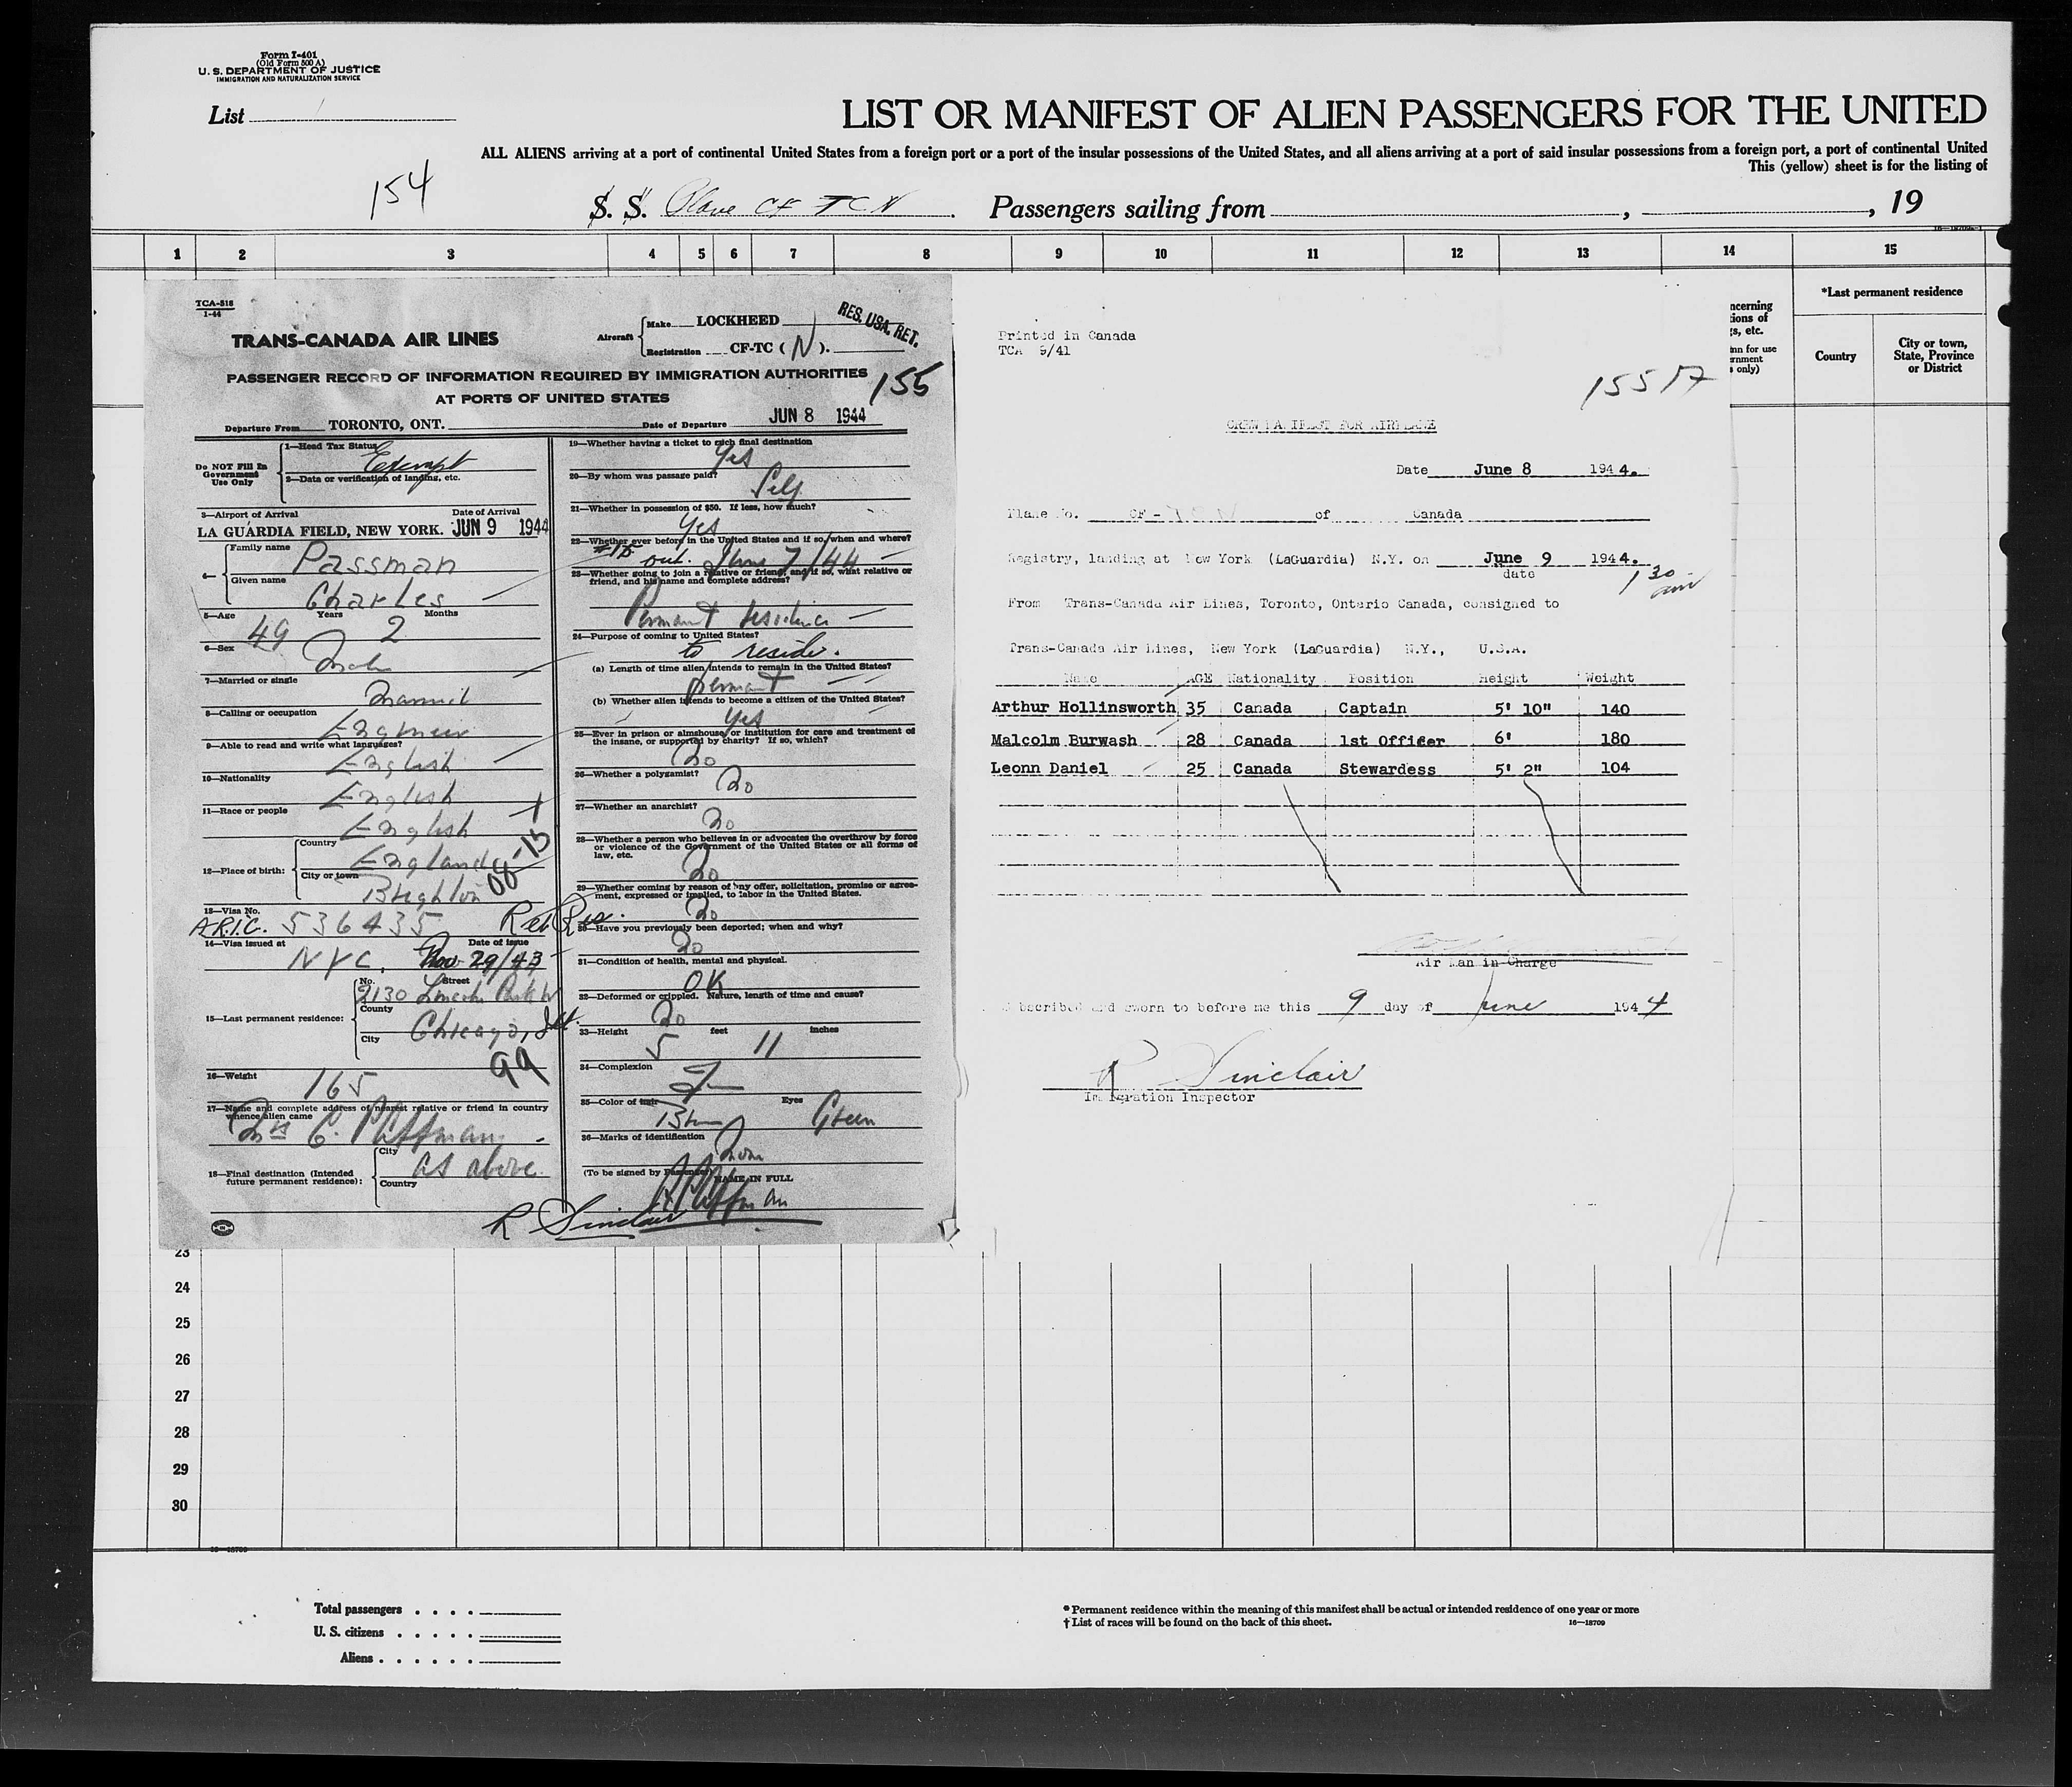 Form I-401
(Old Form 500 A)
U. S. DEPARTMENT OF JUSTICE
IMMIGRATION AND NATURALIZATION SERVICE
List
LIST OR MANIFEST OF ALIEN PASSENGERS FOR THE UNITED
ALL ALIENS arriving at a port of continental United States from a foreign port or a port of the insular possessions of the United States, and all aliens arriving at a port of said insular possessions from a foreign port, a port of continental United
This (yellow) sheet is for the listing of
154
S. S. Plane CF TCN . Passengers sailing from , , 19
1 2 3 4 5 6 7 8 9 10 11 12 13 14 15
TCA-518
1-44
TRANS-CANADA AIR LINES
Aircraft
Make LOCKHEED
Registration CF-TC (N).
RES. USA. RET.
PASSENGER RECORD OF INFORMATION REQUIRED BY IMMIGRATION AUTHORITIES
155
AT PORTS OF UNITED STATES
Departure From TORONTO, ONT. Date of Departure JUN 8 1944
Do NOT Fill In
Government
Use Only
1—Head Tax Status
Exempt
2—Data or verification of landing, etc.
3—Airport of Arrival Date of Arrival
LA GUARDIA FIELD, NEW YORK. JUN 9 1944
4—
Family name
Passman
Given name
Charles
5—Age Years Months
49 2
6—Sex
Male
7—Married or single
Married
8—Calling or occupation
Engineer
9—Able to read and write what languages?
English
10—Nationality
English
11—Race or people
English
12—Place of birth:
Country
England
City or town
Brighton
08-15
13—Visa No.
A.R.I.C. 536435 Ret Res.
14—Visa issued at Date of issue
NYC, Nov 29/43
15—Last permanent residence:
No. Street
2130 Lincoln Park W
County
City
Chicago, Ill.
99
16—Weight
165
17—Name and complete address of nearest relative or friend in country
whence alien came
Mrs C.
18—Final destination (Intended
future permanent residence):
City
as above
Country
19—Whether having a ticket to such final destination
Yes
20—By whom was passage paid?
Self
21—Whether in possession of $50. If less, how much?
Yes
22—Whether ever before in the United States and if so, when and where?
out. June 7/44
23—Whether going to join a relative or friend, and if so, what relative or
friend, and his name and complete address?
Permant residence
24—Purpose of coming to United States?
to reside.
(a) Length of time alien intends to remain in the United States?
permant
(b) Whether alien intends to become a citizen of the United States?
Yes
25—Ever in prison or almshouse, or institution for care and treatment of
the insane, or supported by charity? If so, which?
No
26—Whether a polygamist?
No
27—Whether an anarchist?
No
28—Whether a person who believes in or advocates the overthrow by force
or violence of the Government of the United States or all forms of
law, etc.
No
29—Whether coming by reason of any offer, solicitation, promise or agree-
ment, expressed or implied, to labor in the United States.
No
30—Have you previously been deported; when and why?
No
31—Condition of health, mental and physical.
OK
32—Deformed or crippled. Nature, length of time and cause?
No
33—Height feet inches
5 11
34—Complexion
35—Color of hair Eyes
Brn Green
36—Marks of identification
None
(To be signed by Passenger)
NAME IN FULL
R Sinclair
Printed in Canada
TCA 9/41
155 17
CREW MANIFEST FOR AIRPLANE
Date June 8 1944.
Plane No. CF - of Canada
Registry, landing at New York (LaGuardia) N.Y. on June 9 1944.
date
1 30 am
From Trans-Canada Air Lines, Toronto, Ontario Canada, consigned to
Trans-Canada Air Lines, New York (LaGuardia) N.Y., U.S.A.
Name AGE Nationality Position Height Weight
Arthur Hollinsworth 35 Canada Captain 5' 10" 140
Malcolm Burwash 28 Canada 1st Officer 6' 180
Leonn Daniel 25 Canada Stewardess 5' 2" 104
Air Man in Charge
bscribed and sworn to before me this 9 day of June 1944
R Sinclair
Immigration Inspector
ncerning
ions of
s, etc.
nn for use
ernment
s only)
*Last permanent residence
Country
City or town,
State, Province
or District
23
24
25
26
27
28
29
30
Total passengers . . . .
U. S. citizens . . . . .
Aliens . . . . . .
* Permanent residence within the meaning of this manifest shall be actual or intended residence of one year or more
† List of races will be found on the back of this sheet. 16—18709